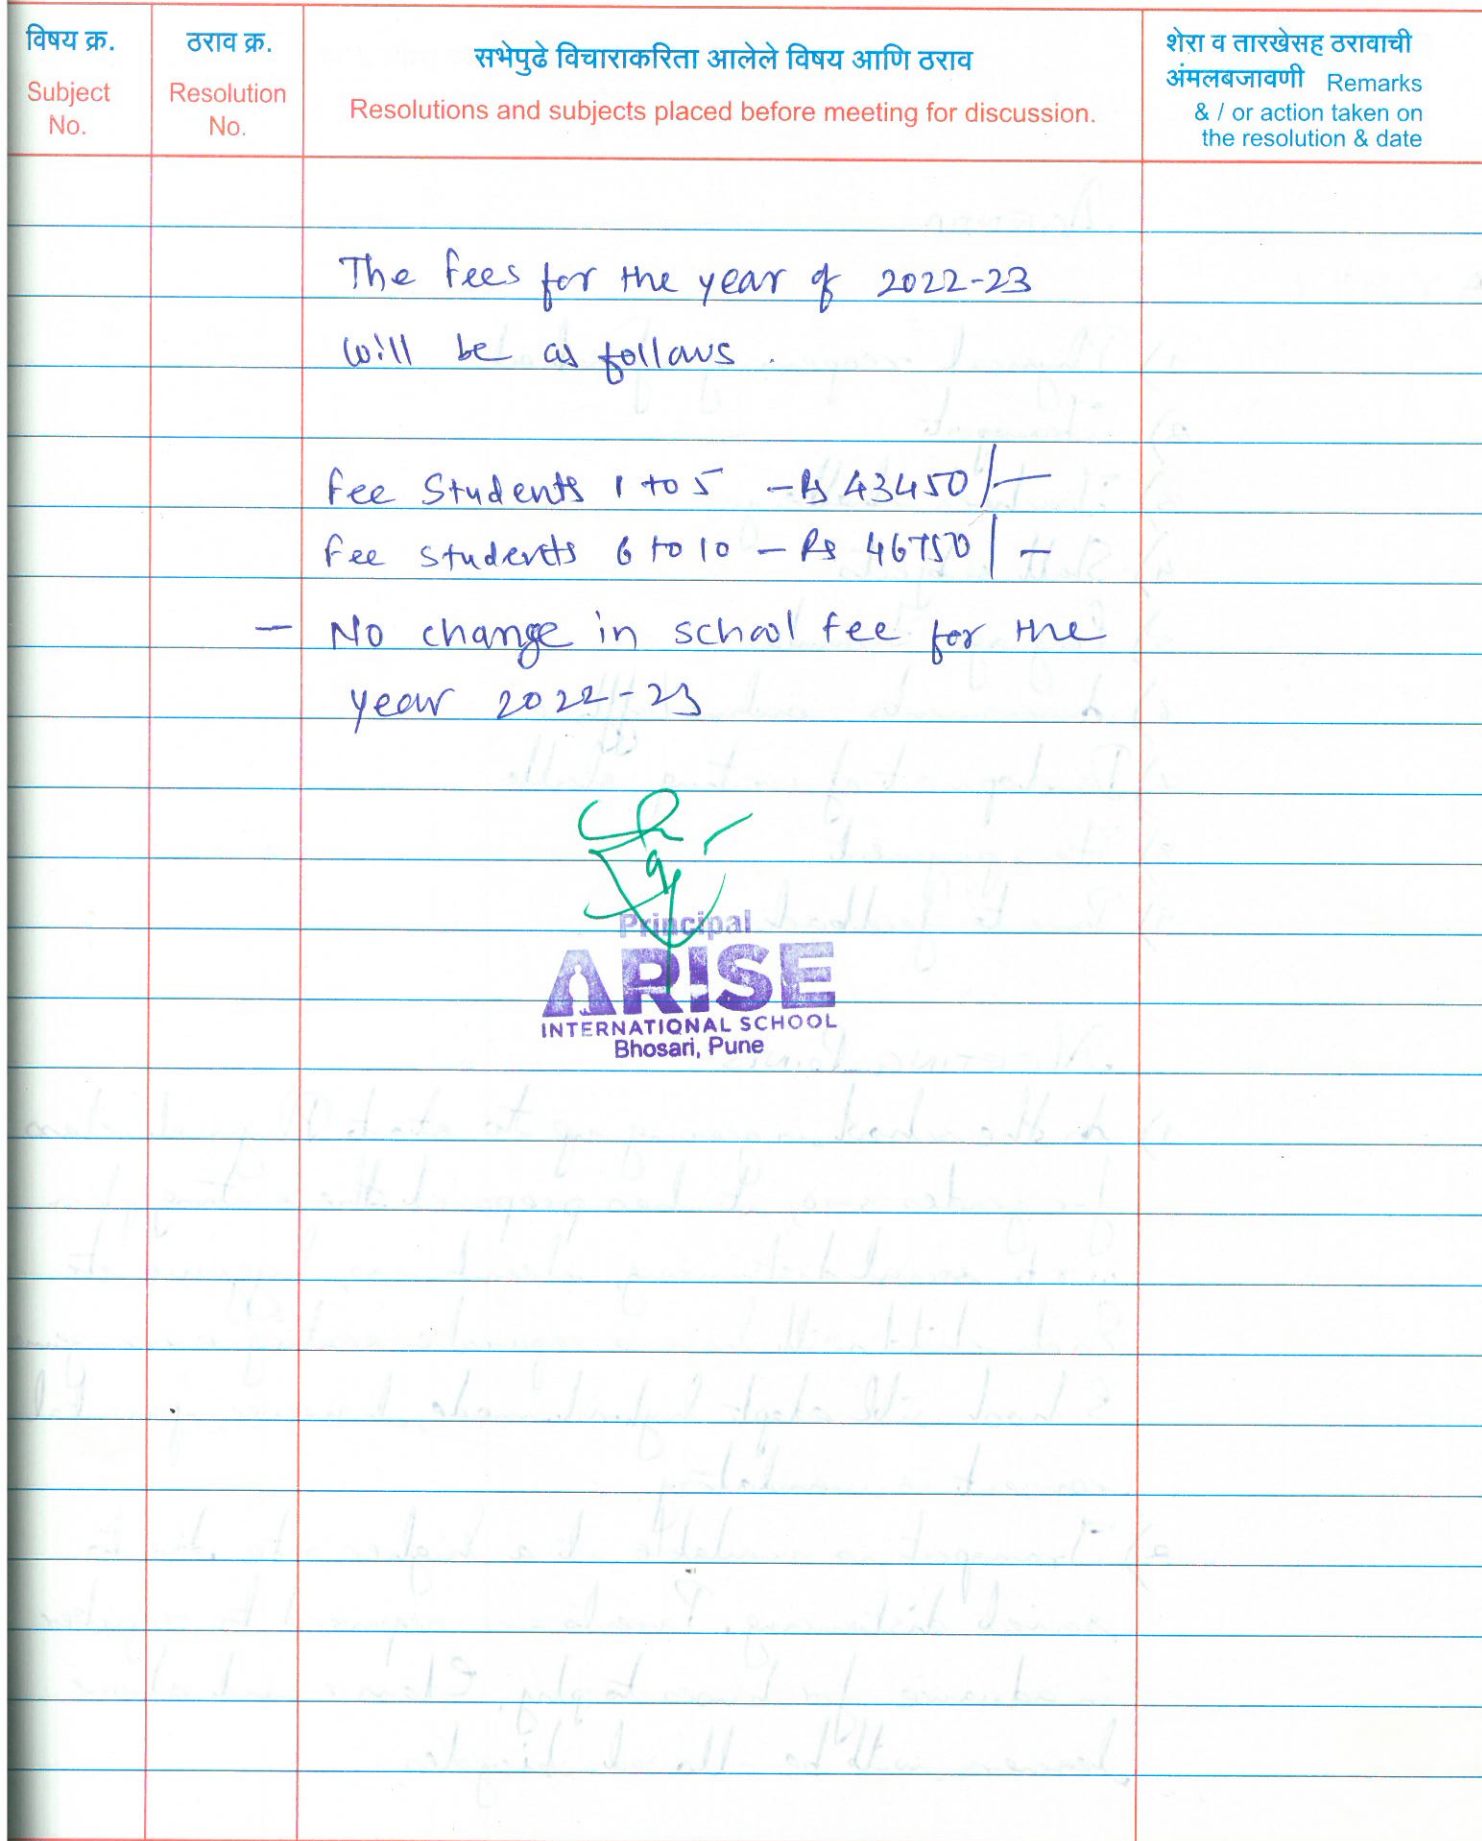 विषय क्र.
Subject
No.
ठराव क्र.
Resolution
No.
सभेपुढे विचाराकरिता आलेले विषय आणि ठराव
Resolutions and subjects placed before meeting for discussion.
शेरा व तारखेसह ठरावाची
अंमलबजावणी Remarks
& / or action taken on
the resolution & date
The fees for the year of 2022-23
will be as follows.
Fee Students 1 to 5 - Rs 43450/-
Fee Students 6 to 10 - Rs 46750/-
- No change in school fee for the
year 2022-23
Principal
ARISE
INTERNATIONAL SCHOOL
Bhosari, Pune